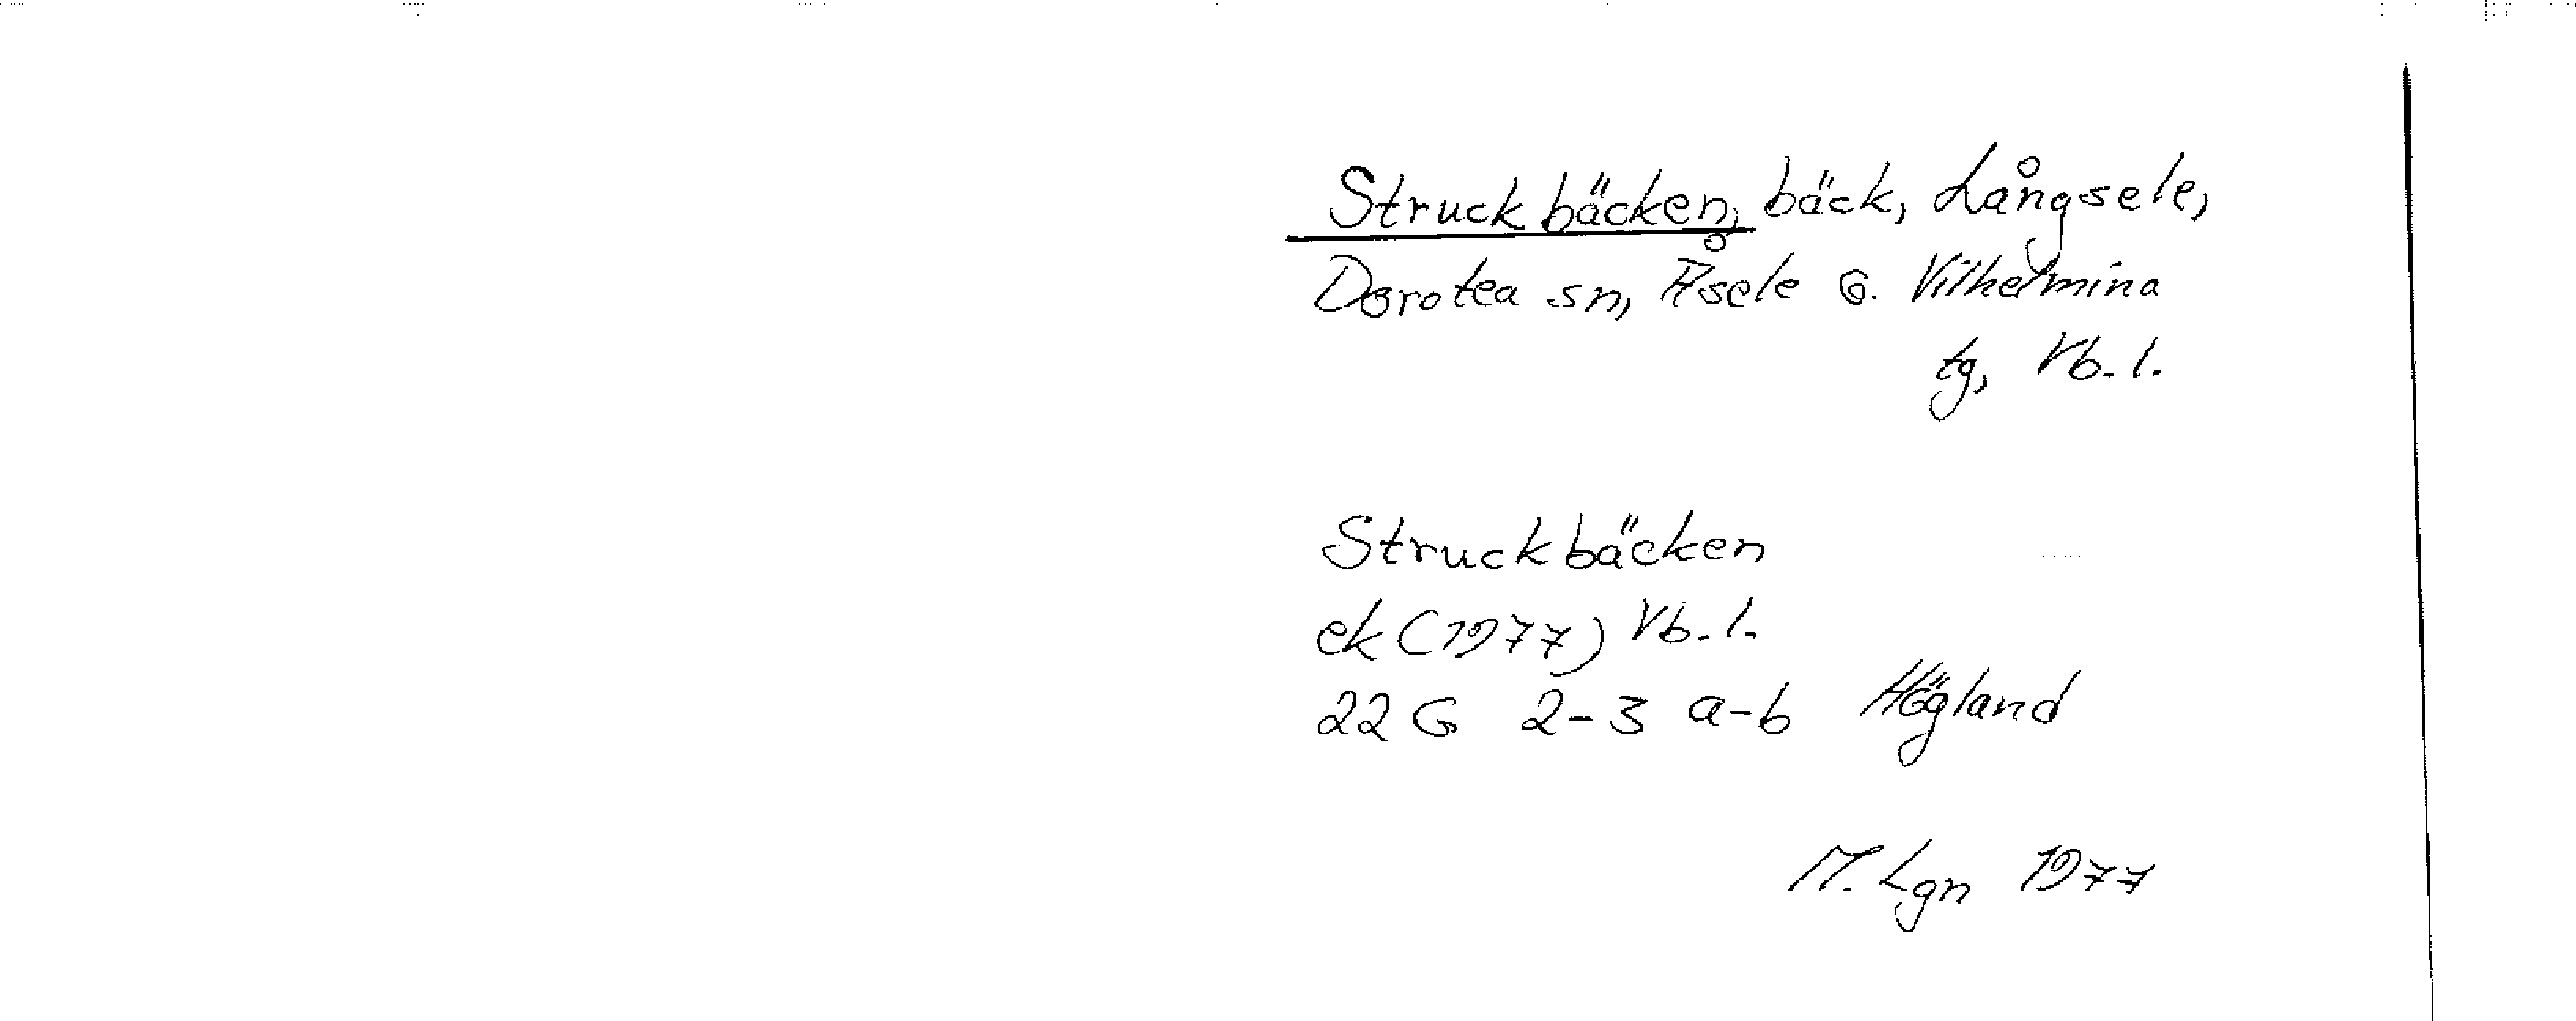 Struckbäcken, bäck, Långsele,
Dorotea sn, Åsele o. Vilhelmina
tg, Vb. l.
Struckbäcken
ek (1977) Vb. l.
22 G 2-3 a-b Högland
M. Lgn 1977